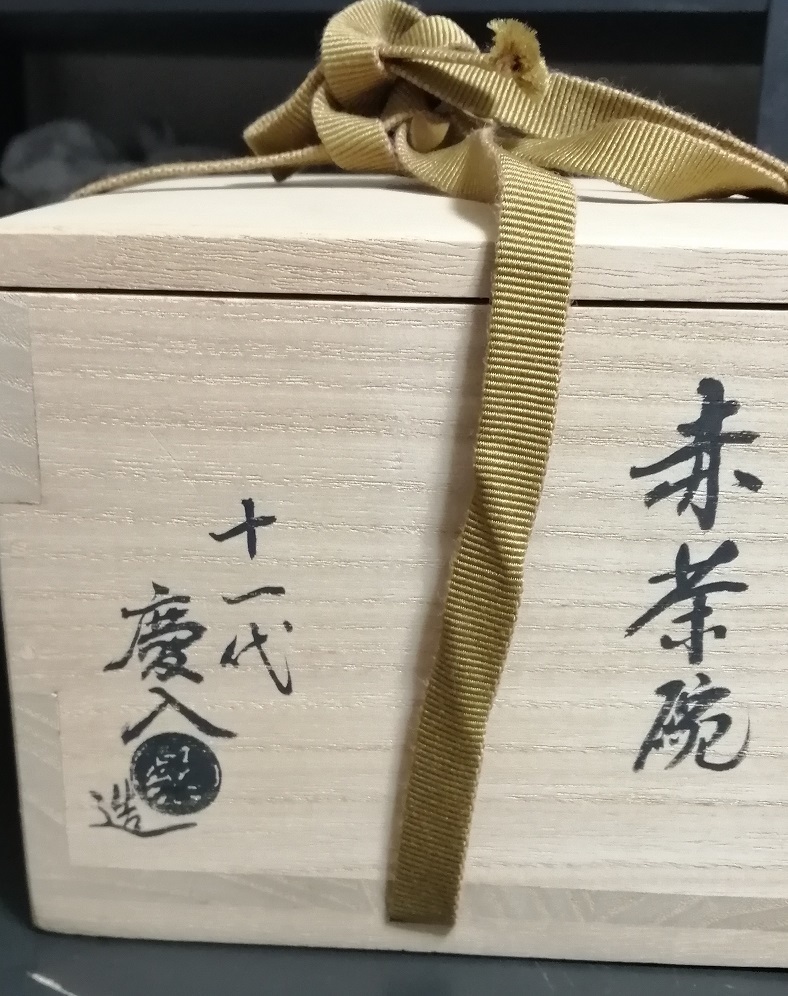 赤茶碗
十一代
慶入
樂
造